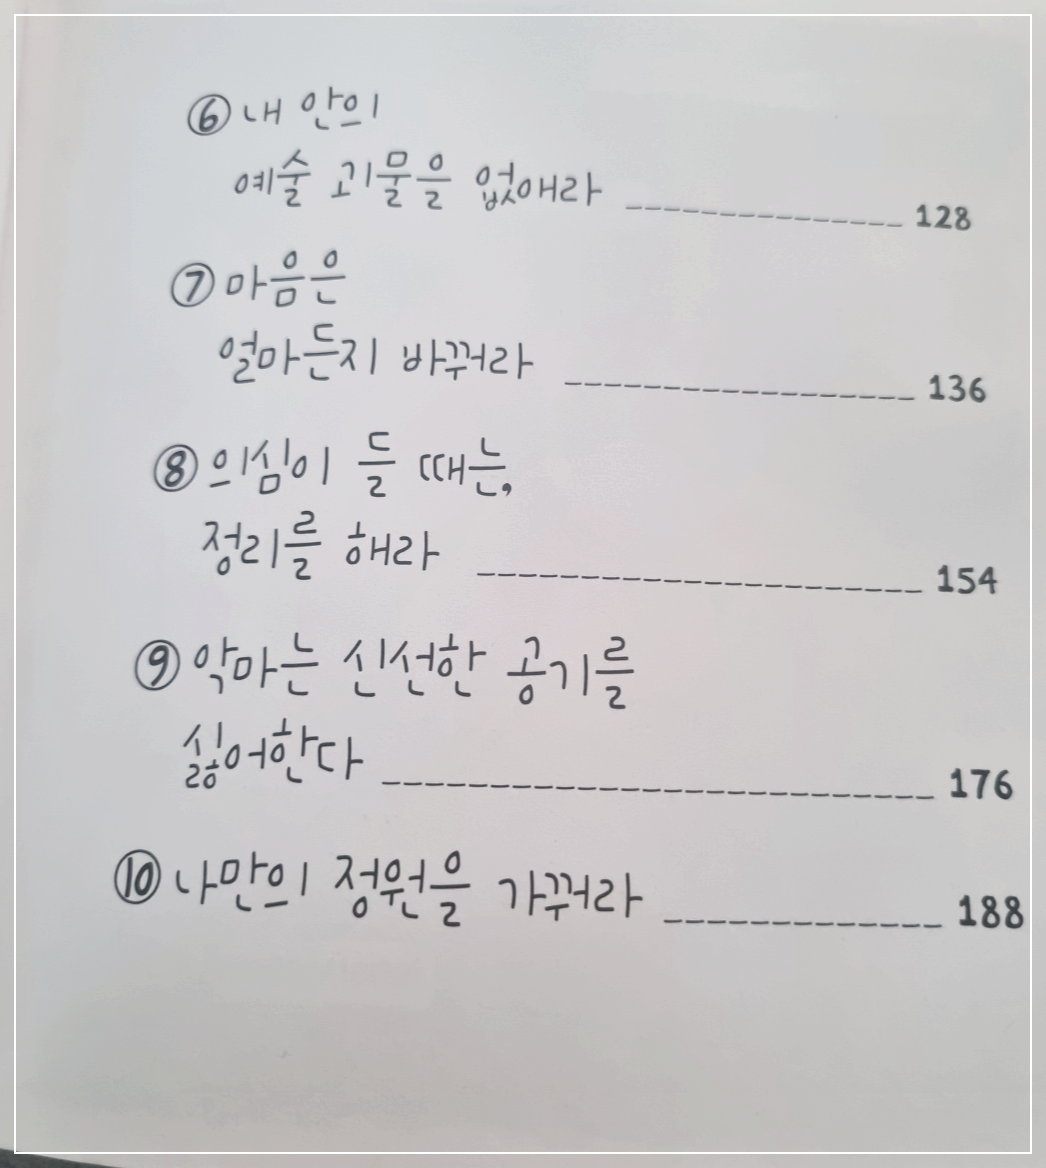 ⑥ 내 안의
예술 괴물을 없애라 -------------- 128
⑦ 마음은
얼마든지 바꿔라 ------------------ 136
⑧ 의심이 들 때는,
정리를 해라 ---------------------- 154
⑨ 악마는 신선한 공기를
싫어한다 --------------------------- 176
⑩ 나만의 정원을 가꿔라 -------------- 188